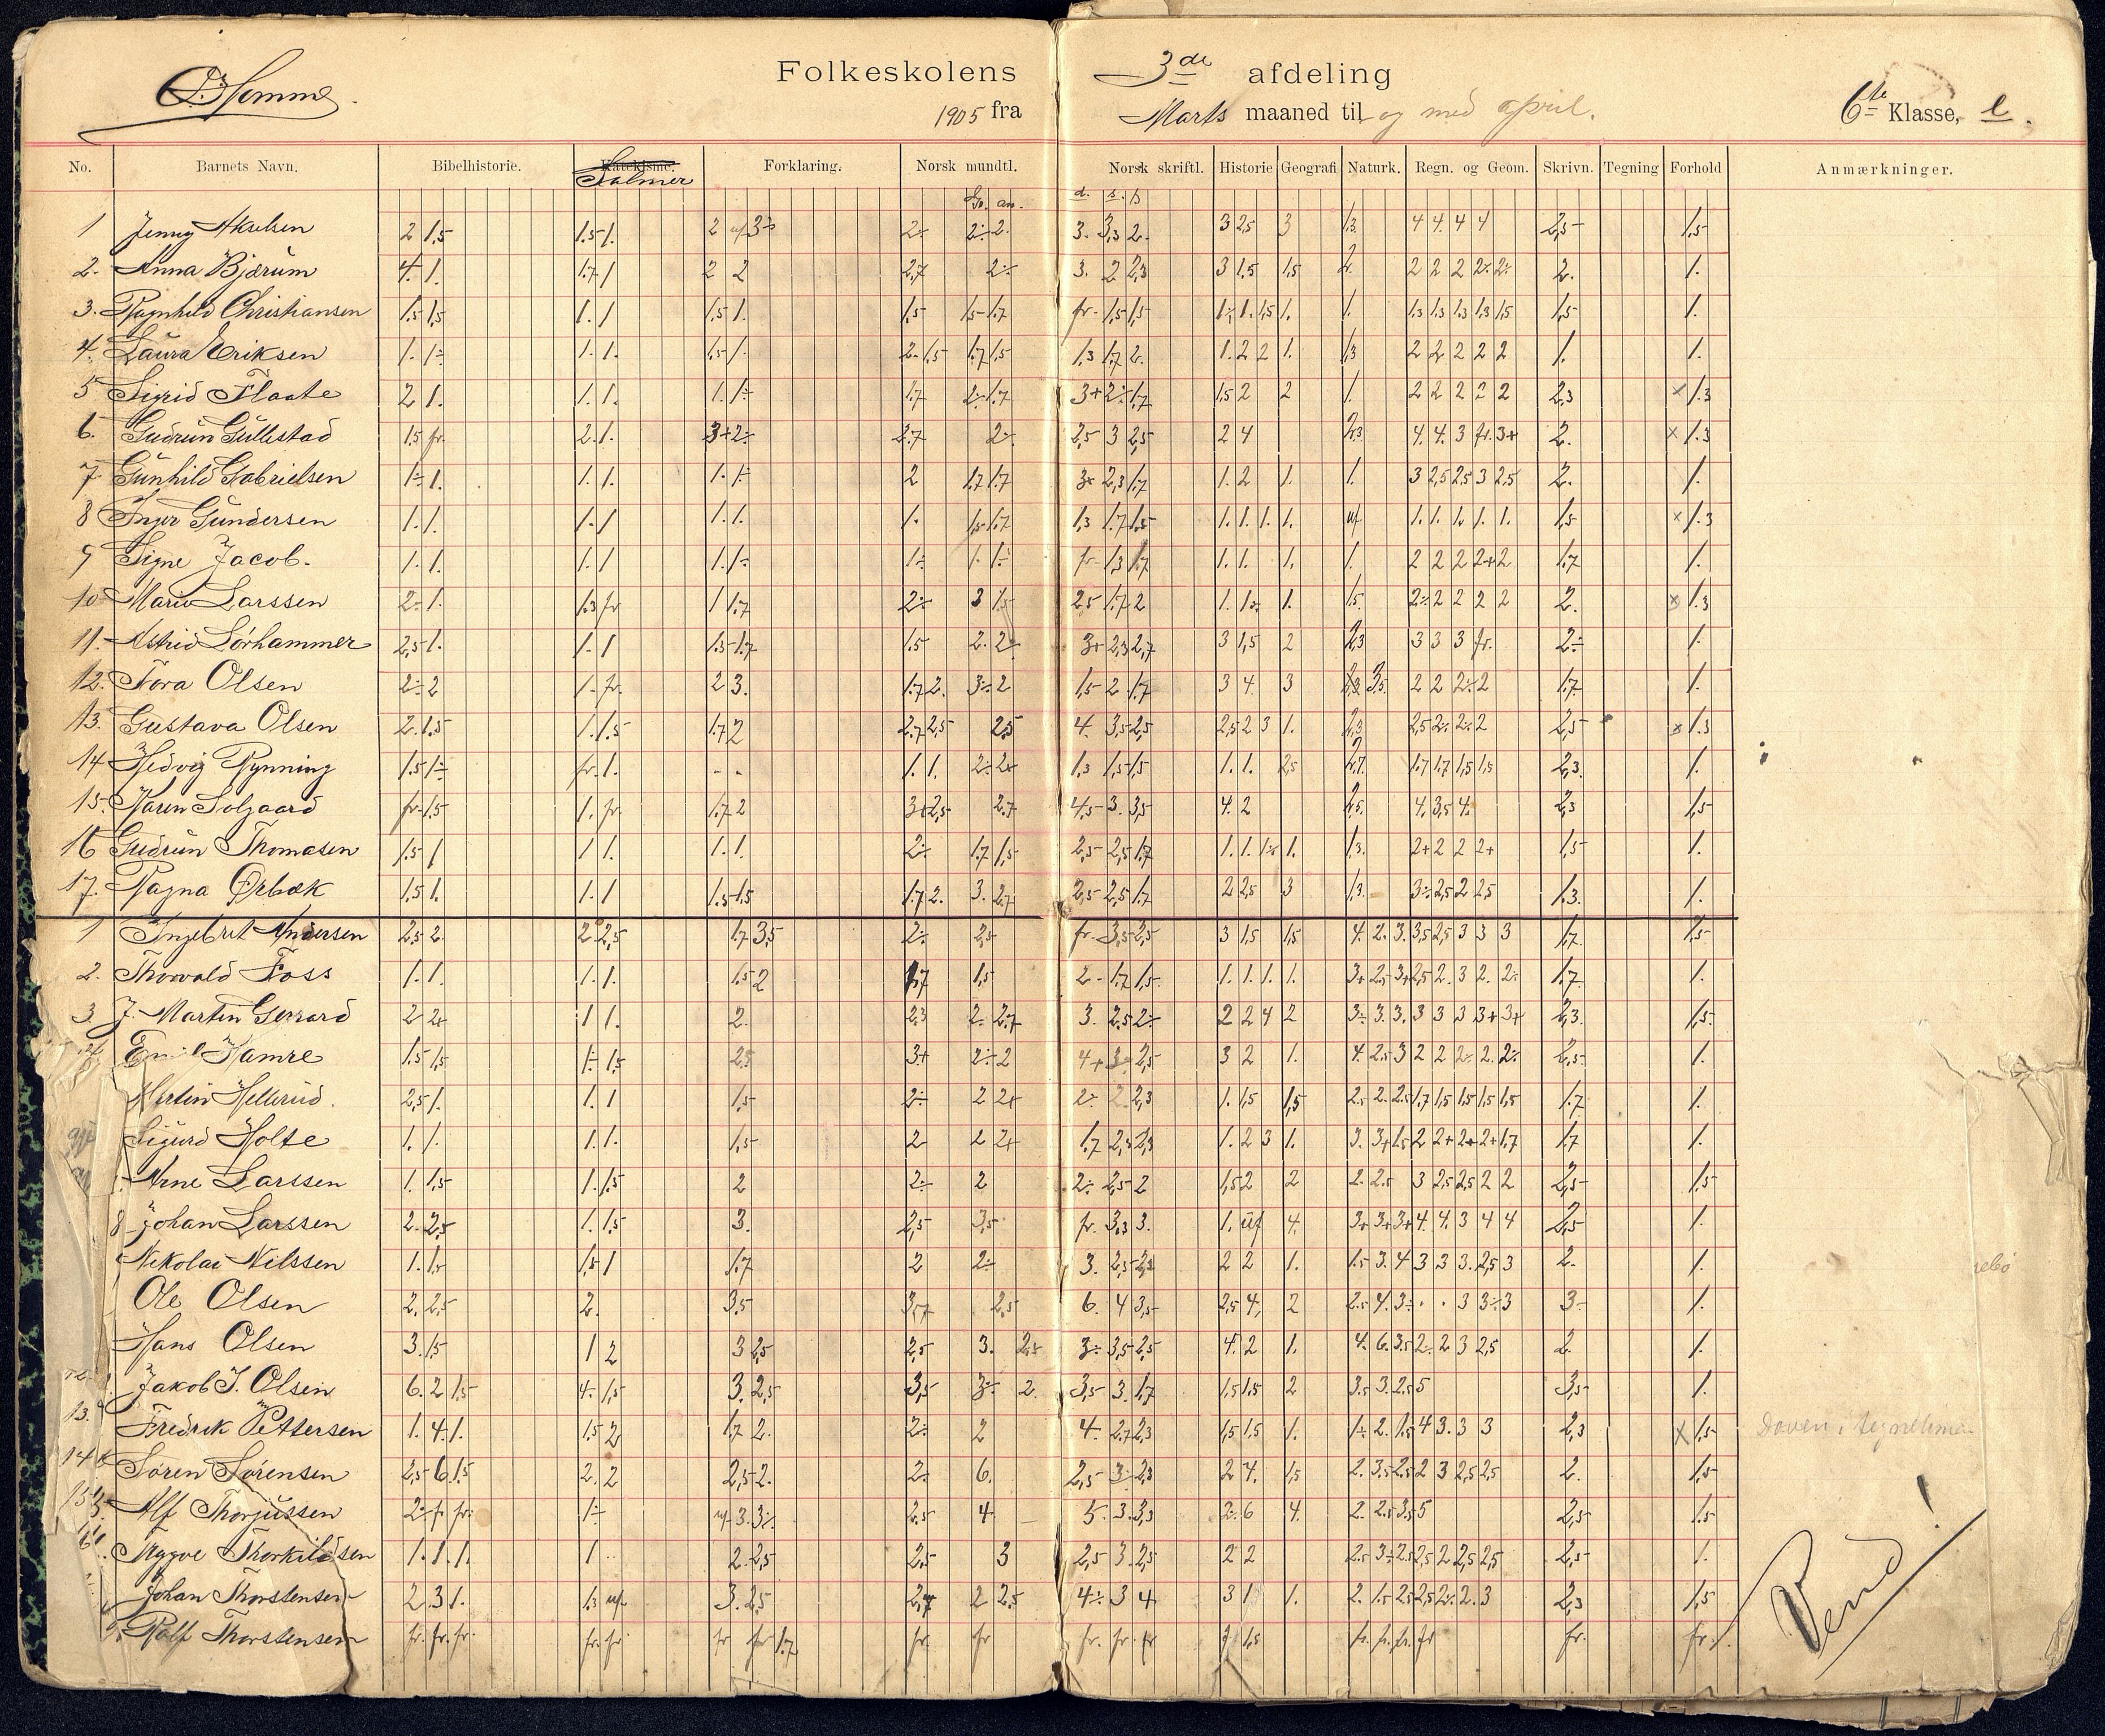 O. Homme.
Folkeskolens 3de afdeling
1905 fra Marts maaned til og med april. 6te Klasse, l.
No. Barnets Navn. Bibelhistorie. Katekisme. Salmer Forklaring. Norsk mundtl. Norsk skriftl. Historie Geografi Naturk. Regn. og Geom. Skrivn. Tegning Forhold Anmærkninger.
Gr. an. d. s. b
1 Jenny Akselsen 2 1,5 1.5 1. 2 uf 3÷ 2÷ 2÷2. 3. 3,3 2. 3 2,5 3 1,3 4 4. 4 4 2,5 1,5
2. Anna Bjærum 4. 1. 1.7 1 2 2 2,7 2÷ 3. 2 2,3 3 1.5 1,5 2. 2 2 2 2÷ 2÷ 2. 1.
3. Ragnhild Christiansen 1.5 1,5 1. 1 1.5 1. 1.5 1.5 1.7 fr. 1,5 1,5 1÷ 1. 1,5 1. 1. 1.3 1.3 1.3 1.3 1,5 1,5 1.
4. Laura Eriksen 1. 1÷ 1. 1. 1.5 1. 2. 1.5 1.7 1,5 1.3 1.7 2. 1. 2 2 1. 1,3 2 2 2 2 2 1. 1.
5 Sigrid Flaate 2 1. 1. 1. 1. 1÷ 1.7 2÷ 1.7 3+ 2÷ 1,7 1.5 2 2 1. 2 2 2 2 2 2,3 x 1.3
6. Gudrun Gullestad 1.5 fr. 2. 1. 3+ 2÷ 2.7 2÷ 2,5 3 2,5 2 4 2,3 4. 4. 3 fr. 3+ 2. x 1.3
7 Gunhild Gabrielsen 1÷ 1. 1. 1. 1. 1÷ 2 1.7 1.7 3÷ 2,3 1.7 1. 2 1. 1. 3 2,5 2,5 3 2,5 2. 1.
8 Inger Gundersen 1. 1. 1. 1 1. 1. 1. 1,5 1.7 1,3 1.7 1.5 1. 1. 1. 1. uf 1. 1. 1. 1. 1. 1,5 x 1.3
9 Signe Jacob. 1. 1. 1. 1 1. 1÷ 1÷ 1. 1÷ fr. 1,3 1.7 1. 1. 1. 1. 2 2 2 2+ 2 1.7 1.
10 Marie Larssen 2÷ 1. 1.3 fr 1 1.7 2÷ 3 1.5 2.5 1.7 2 1. 1÷ 1. 1.5 2÷ 2 2 2 2 2. x 1.3
11. Astrid Sörhammer 2,5 1. 1. 1 1.5 1.7 1.5 2. 2÷ 3+ 2,3 2,7 3 1,5 2 2,3 3 3 3 fr. 2÷ 1.
12. Tora Olsen 2÷ 2 1. fr. 2 3. 1.7 2. 3÷ 2 1,5 2 1.7 3 4. 3 3.5. 2 2 2÷ 2 1.7 1.
13. Gustava Olsen 2. 1.5 1. 1.5 1.7 2 2.7 2,5 2,5 4. 3,5 2,5 2,5 2 3 1. 2,3 2,5 2÷ 2÷ 2 2,5 x 1.3
14 Hedvig Rynning 1.5 1÷ fr. 1. - - 1. 1. 2÷ 2+ 1.3 1,5 1,5 1. 1. 2,5 2.7. 1.7 1.7 1,5 1,5 2,3. 1.
15. Karen Solgaard fr. 1.5 1. fr. 1.7 2 3+ 2,5 2.7 4,5 3. 3,5 4. 2 2,5. 4. 3,5 4. 2,3 1,5
16 Gudrun Thomasen 1.5 1 1 1. 1. 1. 2÷ 1.7 1,5 2,5 2,5 1.7 1. 1. 1÷ 1. 1,3. 2+ 2 2 2+ 1,5 1.
17. Ragna Ørbæk 1.5 1. 1. 1 1.5 1.5 1.7 2. 3. 2.7 2,5 2,5 1.7 2 2,5 3 1,3. 3÷ 2,5 2 2,5 1.3. 1.
1 Ingebret Andersen 2.5 2. 2 2,5 1.7 3,5 2÷ 2,5 fr. 3,5 2,5 3 1.5 1,5 4. 2. 3. 3,5 2,5 3 3 3 1,7. 1,5
2. Thorvald Foss 1. 1. 1. 1. 1.5 2 1.7 1,5 2 1.7 1,5 1. 1. 1. 1. 3+ 2.5 3+ 2,5 2. 3 2. 2÷ 1.7. 1.
3. J. Martin Gerrard 2 2+ 1 1. 2. 2.3 2÷ 2.7 3. 2.5 2÷ 2 2 4 2 3÷ 3. 3. 3 3 3 3+ 3+ 2,3. 1,5.
Emil Hamre 1.5 1,5 1÷ 1.5 2,5 3+ 2÷ 2 4+ 3 2,5 3 2 1. 4. 2.5 3 2 2 2÷ 2. 2÷ 2,5. 1.
Martin Hellerud. 2,5 1. 1. 1 1,5 2÷ 2 2+ 2÷ 2 2,3 1. 1,5 1,5 2. 2. 2.5 1,7 1,5 1,5 1,5 1,5 1.7 1.
Sigurd Holte 1. 1. 1. 1. 1,5 2 2 2+ 1.7 2,3 2,3 1. 2 3 1. 3. 3+ 1.5 2 2+ 2+ 2+ 1.7 1.7 1.
Arne Larssen 1. 1.5 1. 1.5 2 2÷ 2 2÷ 2,5 2 1,5 2 2 2. 2.5 3 2,5 2,5 2 2 2,5 1,5
8 Johan Larssen 2. 2,5 1. 1.5 3. 2,5 3,5 fr. 3,3 3. 1. uf 4. 3+ 3+ 3+ 4. 4. 3 4 4 2,5 1.
Nikolai Nilssen 1. 1.5 1,5 1 1.7 2 2÷ 3. 2,5 2,3 2 2 1. 1.5 3. 4 3 3 3. 2,5 3 2. 1. rebö
Ole Olsen 2. 2,5 2. 3,5 3,7 2,5 6. 4 3,5 2,5 4, 2 2.5 4. 3÷ . . 3 3÷ 3 3 1.
Hans Olsen 3. 1.5 1 2 3 2,5 2,5 3. 2,5 3÷ 3,5 2,5 4. 2 1. 4. 6. 3.5 2÷ 2 3 2,5 2. 1.
Jakob I. Olsen 6. 2 1.5 4. 1,5 3. 2,5 3,5 3÷ 2. 3,5 3. 1.7 1.5 1.5 2 3.5 3. 2.5 5 3,5 1.
13. Fredrik Pettersen 1. 4. 1. 1,5 2 1.7 2. 2÷ 2 4. 2.7 2,3 1,5 1,5 1. 1÷ 2. 1.5 4 3. 3 3 2,3 x 1,5 Doven i
14 Sören Sörensen 2,5 6. 1.5 2. 2 2,5 2. 2÷ 6. 2,5 3÷ 2,3 2 4. 1,5 2. 3.5 2.5 2 3 2,5 2,5 2. 1,5
15 Alf Thorjussen 2÷ fr. fr. 1÷ uf 3. 3÷ 2.5 4. 5. 3. 3,3 2÷ 6 4. 2. 2.5 3.5 5 2,5 1.5
16 Trygve Thorkildsen 1. 1. 1. 1 2. 2,5 2,5 3 2,5 3. 2,5 2 2 2.5 3÷ 2.5 2,5 2 2,5 2,5 2,5 1.
Johan Thorstensen 2. 3 1. 1.3 uf. 3. 2,5 2,7 2 2,5 4÷ 3 4 3 1 1. 2. 1.5 2.5 2,5 2÷ 2. 3 2,3 1,5
Rolf Thorstensen fr. fr. fr. fr. fr. fr fr 1.7 fr. fr fr. fr. fr 1,5 fr. fr. fr. fr fr. fr.
Vend!